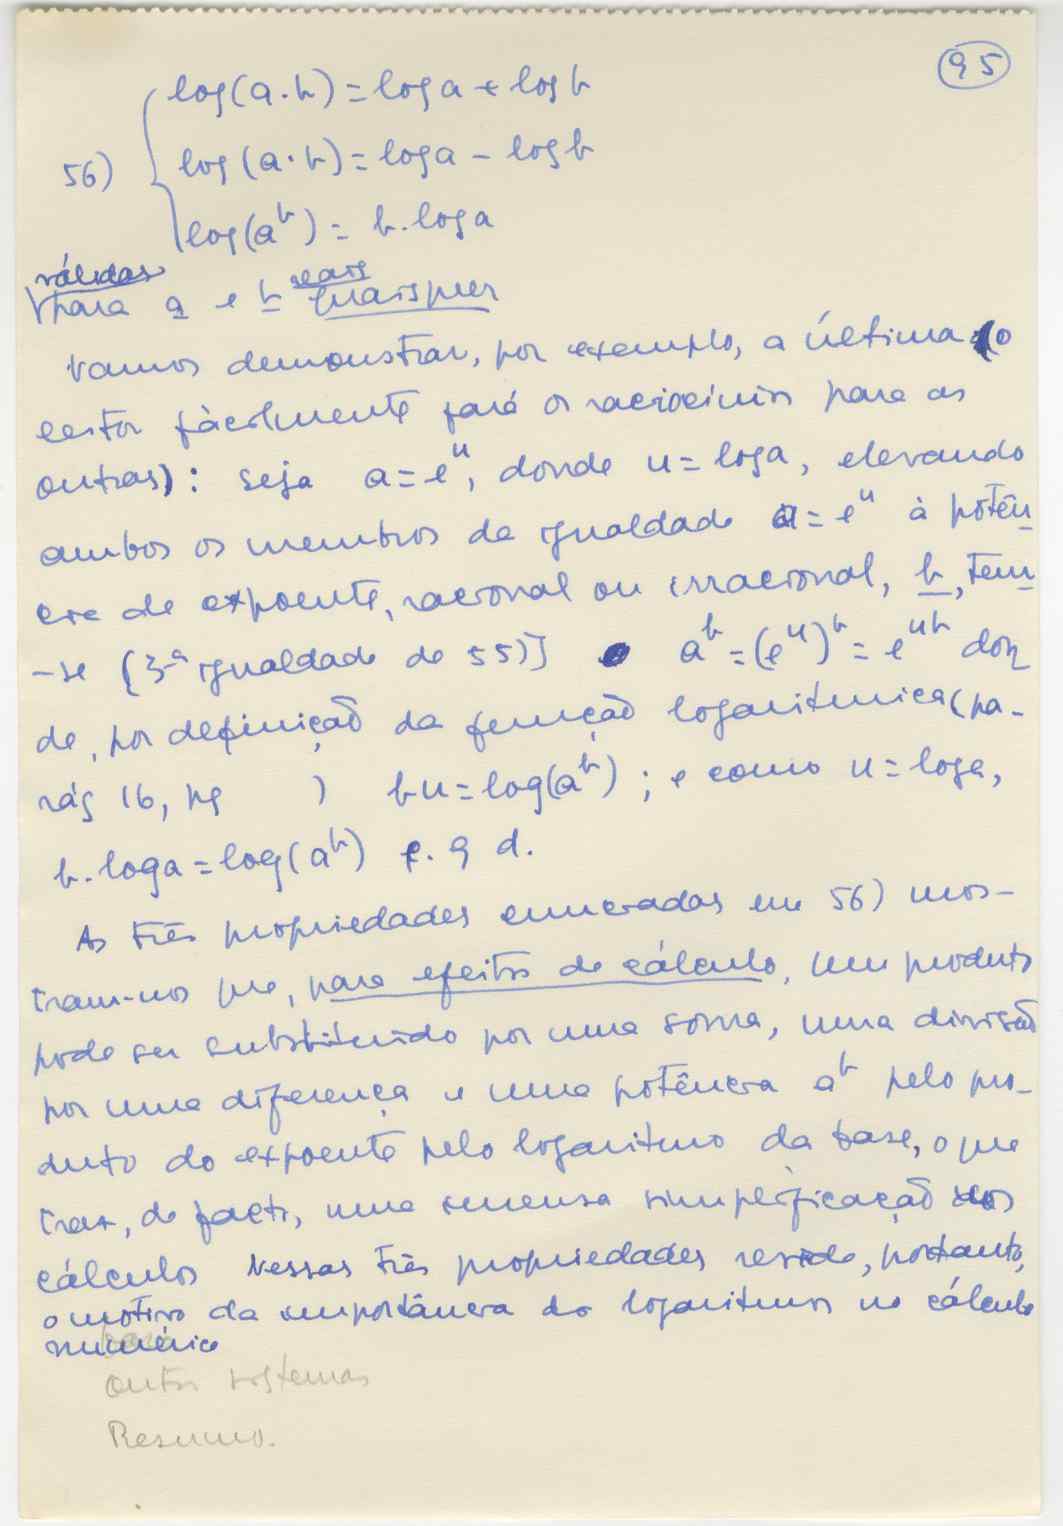 95
log(a.b) = log a + log b
56) log(a.b) = log a - log b
log(a^b) = b. log a
válidas reais
para a e b quaisquer
Vamos demonstrar, por exemplo, a última (o
leitor fàcilmente fará os raciocínios para as
outras): seja a = e^u, donde u = log a, elevando
ambos os membros da igualdade a = e^u à potên
cia de expoente, racional ou irracional, b, tem
-se [3-a igualdade de 55)] a^b = (e^u)^b = e^ub don
de, por definição da função logaritmica (pa-
rág 16, pg ) bu = log(a^b) ; e como u = log a,
b. log a = log(a^b) c. q d.
As três propriedades enunciadas em 56) mos-
tram-nos que, para efeitos de cálculo, um produto
pode ser substituído por uma soma, uma divisão
por uma diferença e uma potência a^b pelo pro-
duto do expoente pelo logaritmo da base, o que
traz, de facto, uma imensa simplificação dos
cálculos Nessas três propriedades reside, portanto,
o motivo da importância dos logaritmos no cálculo
numérico
Outros sistemas
Resumo.